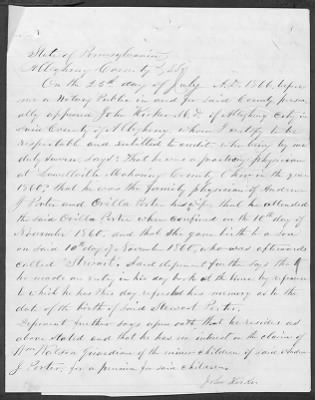 State of Pennsylvania
Allegheny County } SS
On the 25th day of July A.D. 1866, before
me a Notary Public in and for said County person-
ally appeared John M.D. of Allegheny City, in
said County of Allegheny, whom I certify to be
respectable and entitled to credit, who being by me
duly sworn, says: That he was a practicing physician
at Lowellville Mahoning County Ohio in the year
1860: that he was the family physician of Andrew
J Porter and Orilla Porter his wife, that he attended
the said Orilla Porter when confined on the 10th day of
November 1860, and that she gave birth to a son
on said 10th day of November 1860, who was afterwards
called Stewart. Said deponent further says that
he made an entry in his day book at the time, by reference
to which he has this day refreshed his memory as to the
date of the birth of said Stewart Porter.
Deponent further says upon oath that he resides as
above stated and that he has no interest in the claim of
Wm Watson Guardian of the minor children of said Andrew
J. Porter, for a pension for said children.
John